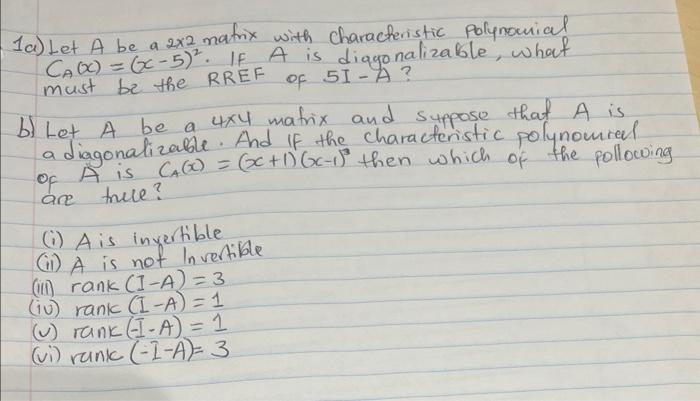 1a) Let A be a 2x2 matrix with characteristic polynomial
C_A(x) = (x-5)². IF A is diagonalizable, what
must be the RREF of 5I-A?
b) Let A be a 4x4 matrix and suppose that A is
a diagonalizable. And if the characteristic polynomial
of A is C_A(x) = (x+1)(x-1)³ then which of the following
are true?
(i) A is invertible
(ii) A is not Invertible
(iii) rank (I-A) = 3
(iv) rank (I-A) = 1
(v) rank (-I-A) = 1
(vi) rank (-I-A) = 3